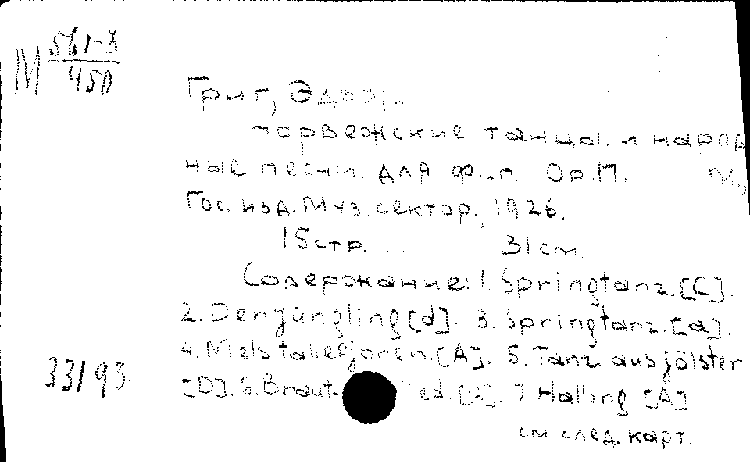 М 561-8
450
Григ, Эдвард.
Норвежские танцы и народ
ные песни для ф.-п. Op.17. М.,
Гос. изд. Муз. сектор, 1926.
15 стр. 31 см.
Содержание: 1. Springtanz.[C].
2. Der Jüngling [d]. 3. Springtanz.[a].
4. [A]. 5. Tanz aus Jölster
[D]. 6. Braut ed. 7. Halling [A]
33193
см. след. карт.